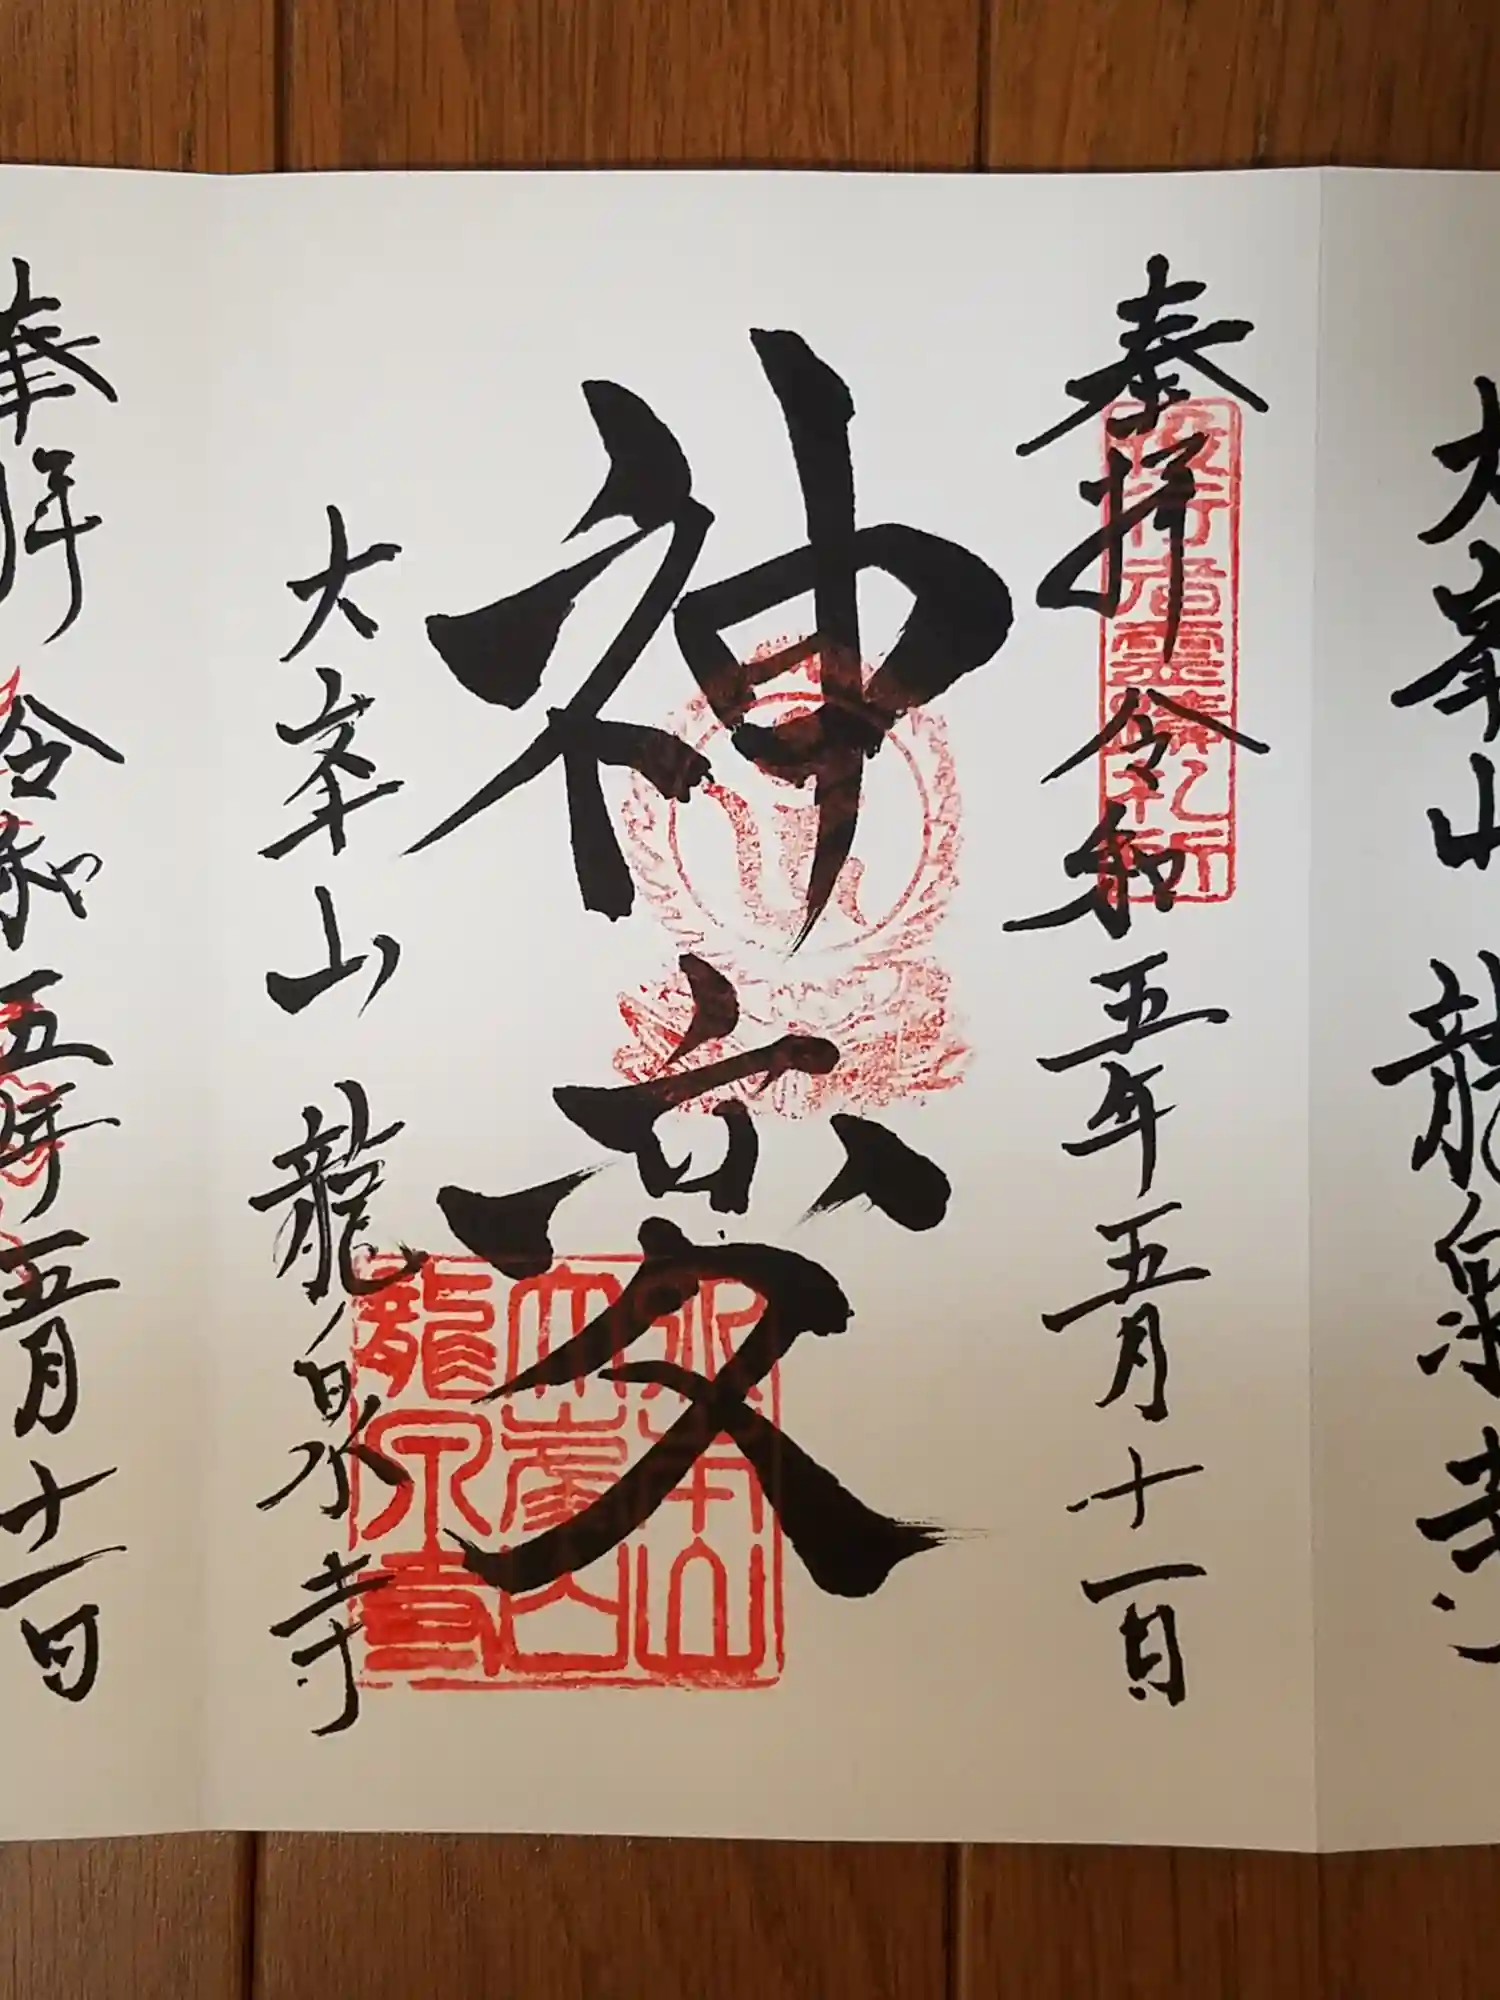 大峯山 龍泉寺
奉拝 令和五年五月十一日
役行者霊蹟札所
神変
大峯山 龍泉寺
大峯山
龍泉寺
奉拝 令和五年五月十一日